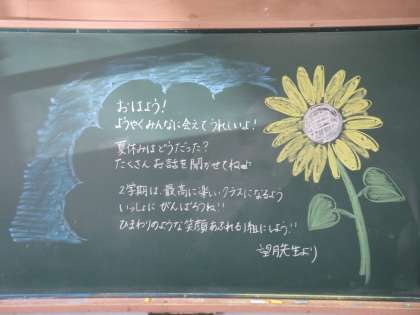 おはよう!
ようやくみんなに会えてうれしいよ!
夏休みはどうだった?
たくさんお話を聞かせてね♪
2学期は、最高に楽しいクラスになるよう
いっしょにがんばろうね!!
ひまわりのような笑顔あふれる1組にしよう!!
望月先生より